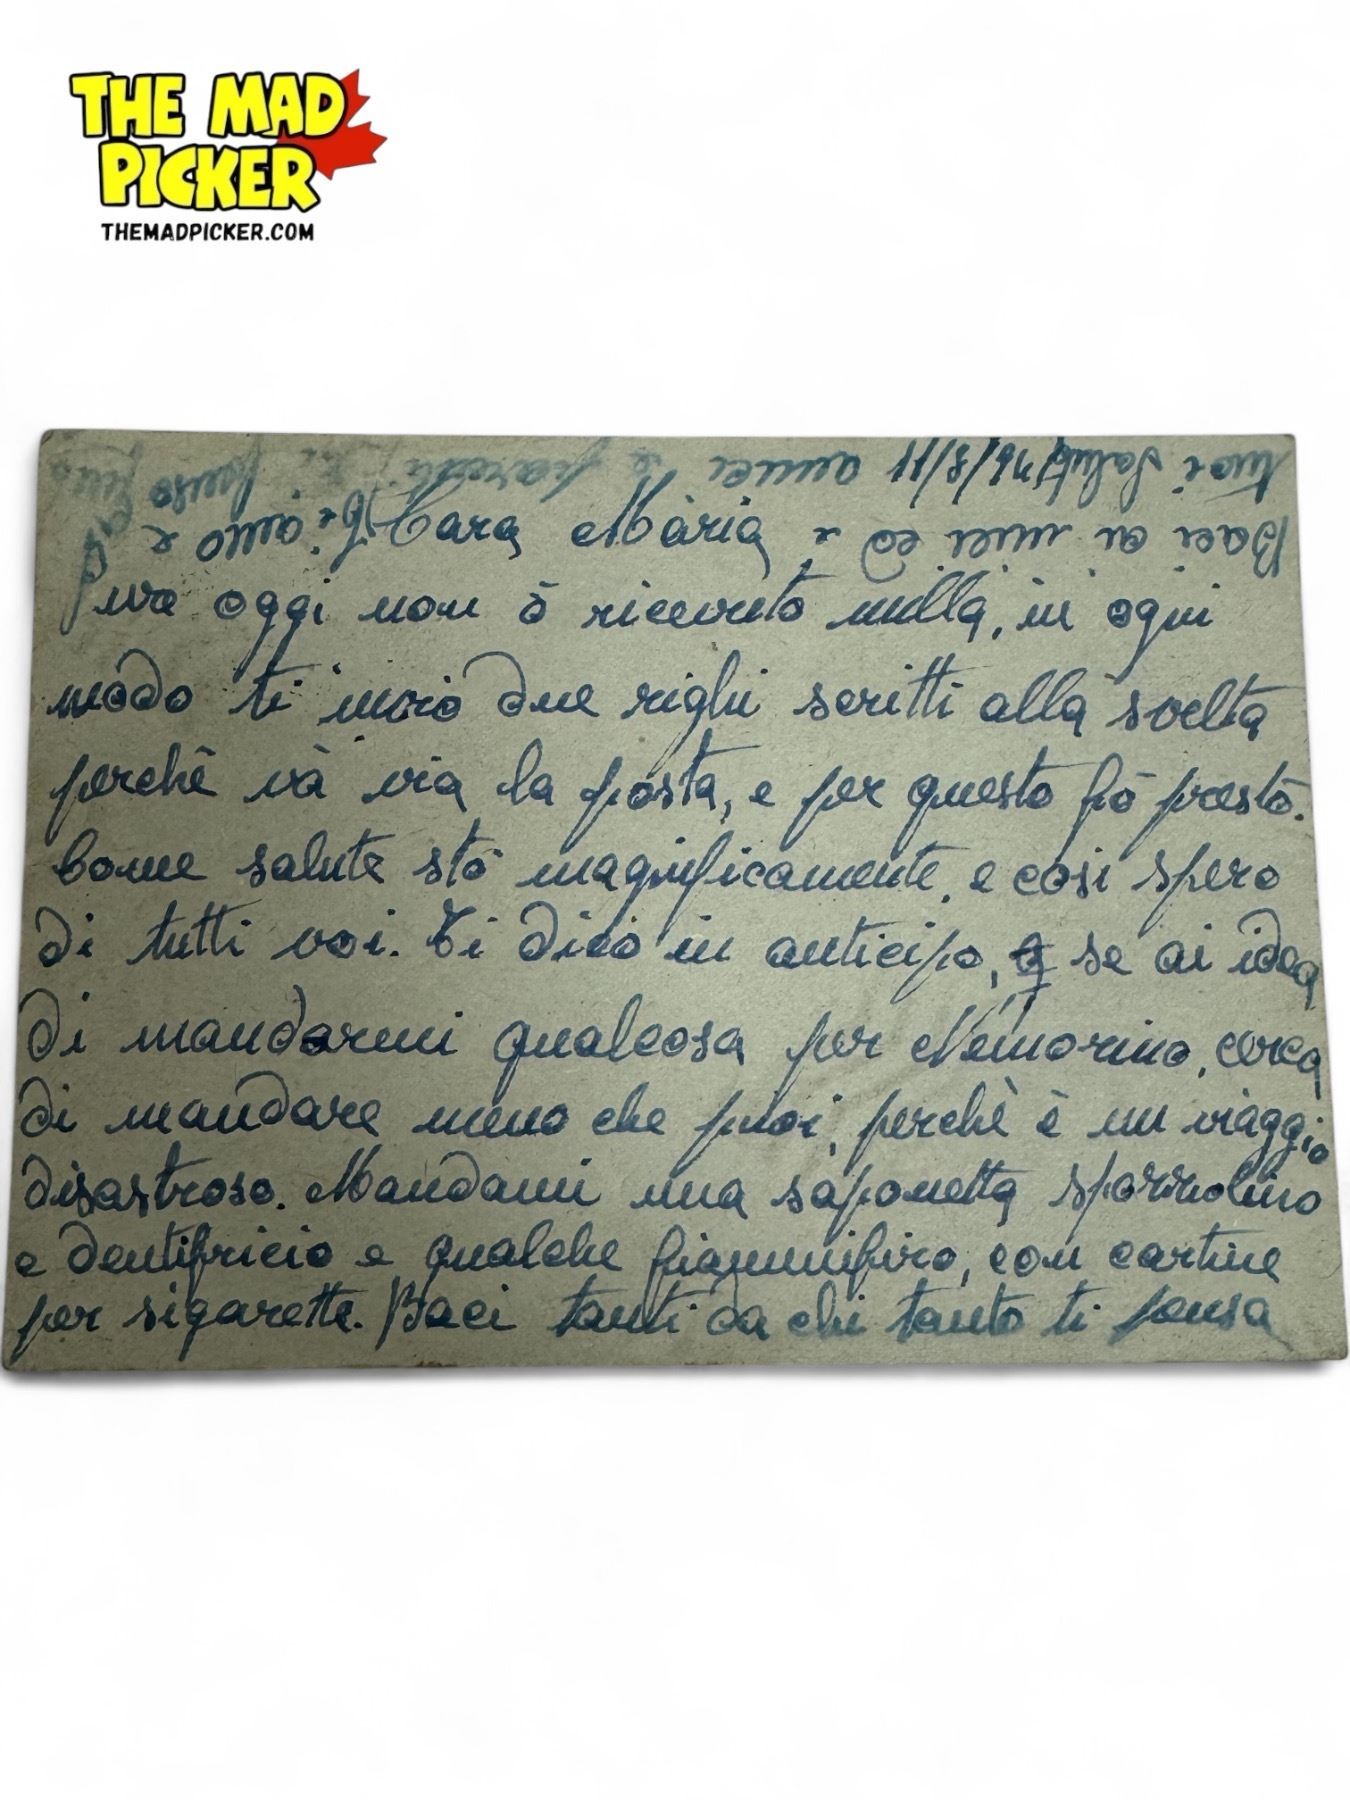 THE MAD
PICKER
THEMADPICKER.COM
Cara Maria
oggi non ò ricevuto nulla, in ogni
modo ti invio due righi scritti alla svelta
perchè và via la posta, e per questo fò presto.
Come salute stò magnificamente, e così spero
di tutti voi. Ti dico in anticipo, se ai idea
di mandarmi qualcosa per Nemorino, cerca
di mandare meno che puoi, perchè è un viaggio
disastroso. Mandami una saponetta
e dentifricio e qualche fiammifiro, con cartine
per sigarette. Baci tanti da chi tanto ti pensa
Baci ai miei ed e amo e
tuoi Saluti amici e parenti. ti penso